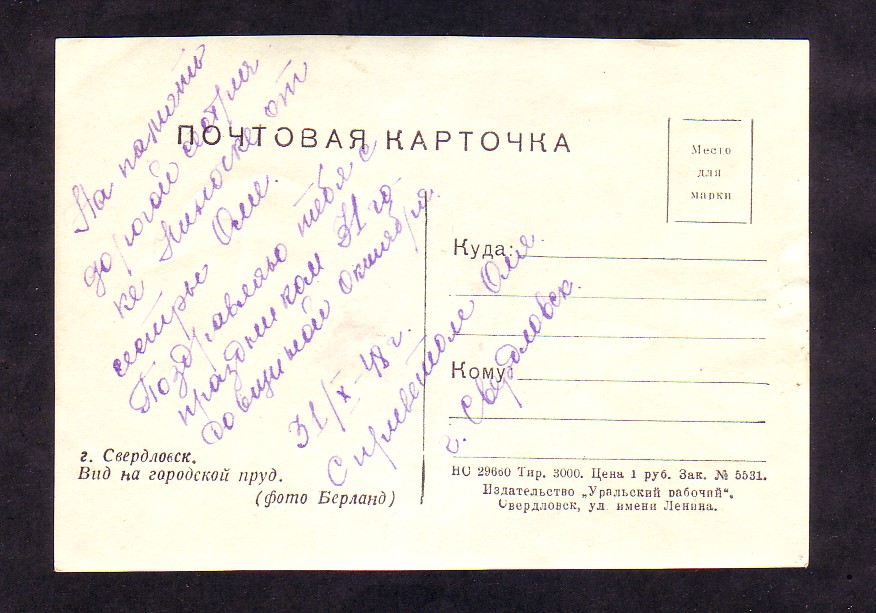 ПОЧТОВАЯ КАРТОЧКА
Место
для
марки
На память
дорогой сестрич
ке Ниночке от
сестры Оли.
Поздравляю тебя с
праздником 31 го-
довщиной октября.
31/X-48 г.
С приветом Оля
г. Свердловск.
Куда:
Кому:
г. Свердловск.
Вид на городской пруд.
(фото Берланд)
НС 29660 Тир. 3000. Цена 1 руб. Зак. № 5531.
Издательство „Уральский рабочий“.
Свердловск, ул. имени Ленина.